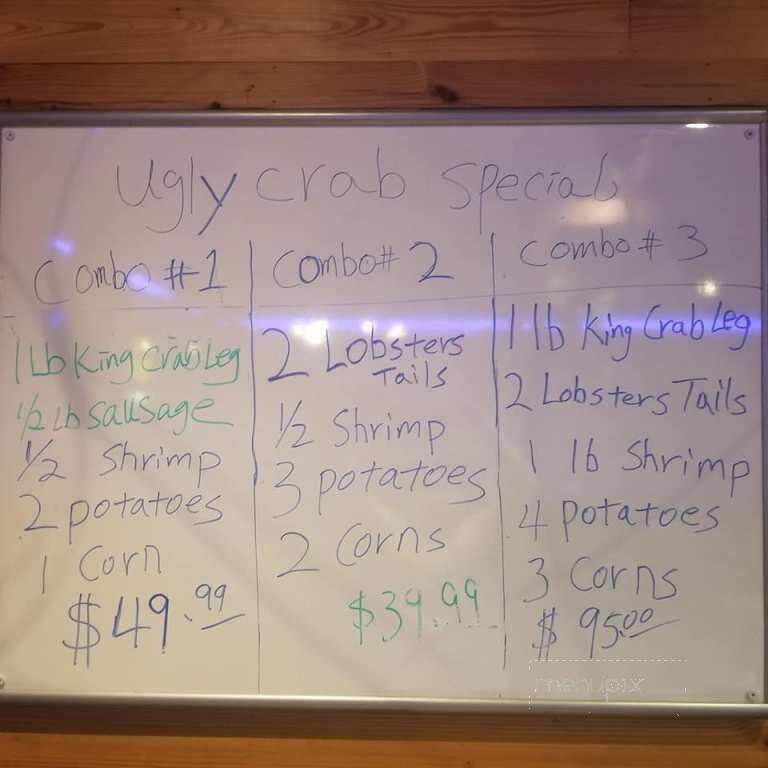 Ugly crab special
Combo #1
1 Lb King Crab Leg
1/2 Lb sausage
1/2 Shrimp
2 potatoes
1 Corn
$49.99
Combo# 2
2 Lobsters
Tails
1/2 Shrimp
3 potatoes
2 Corns
$39.99
Combo # 3
1 lb King Crab Leg
2 Lobsters Tails
1 lb Shrimp
4 potatoes
3 Corns
$95.00
menupix